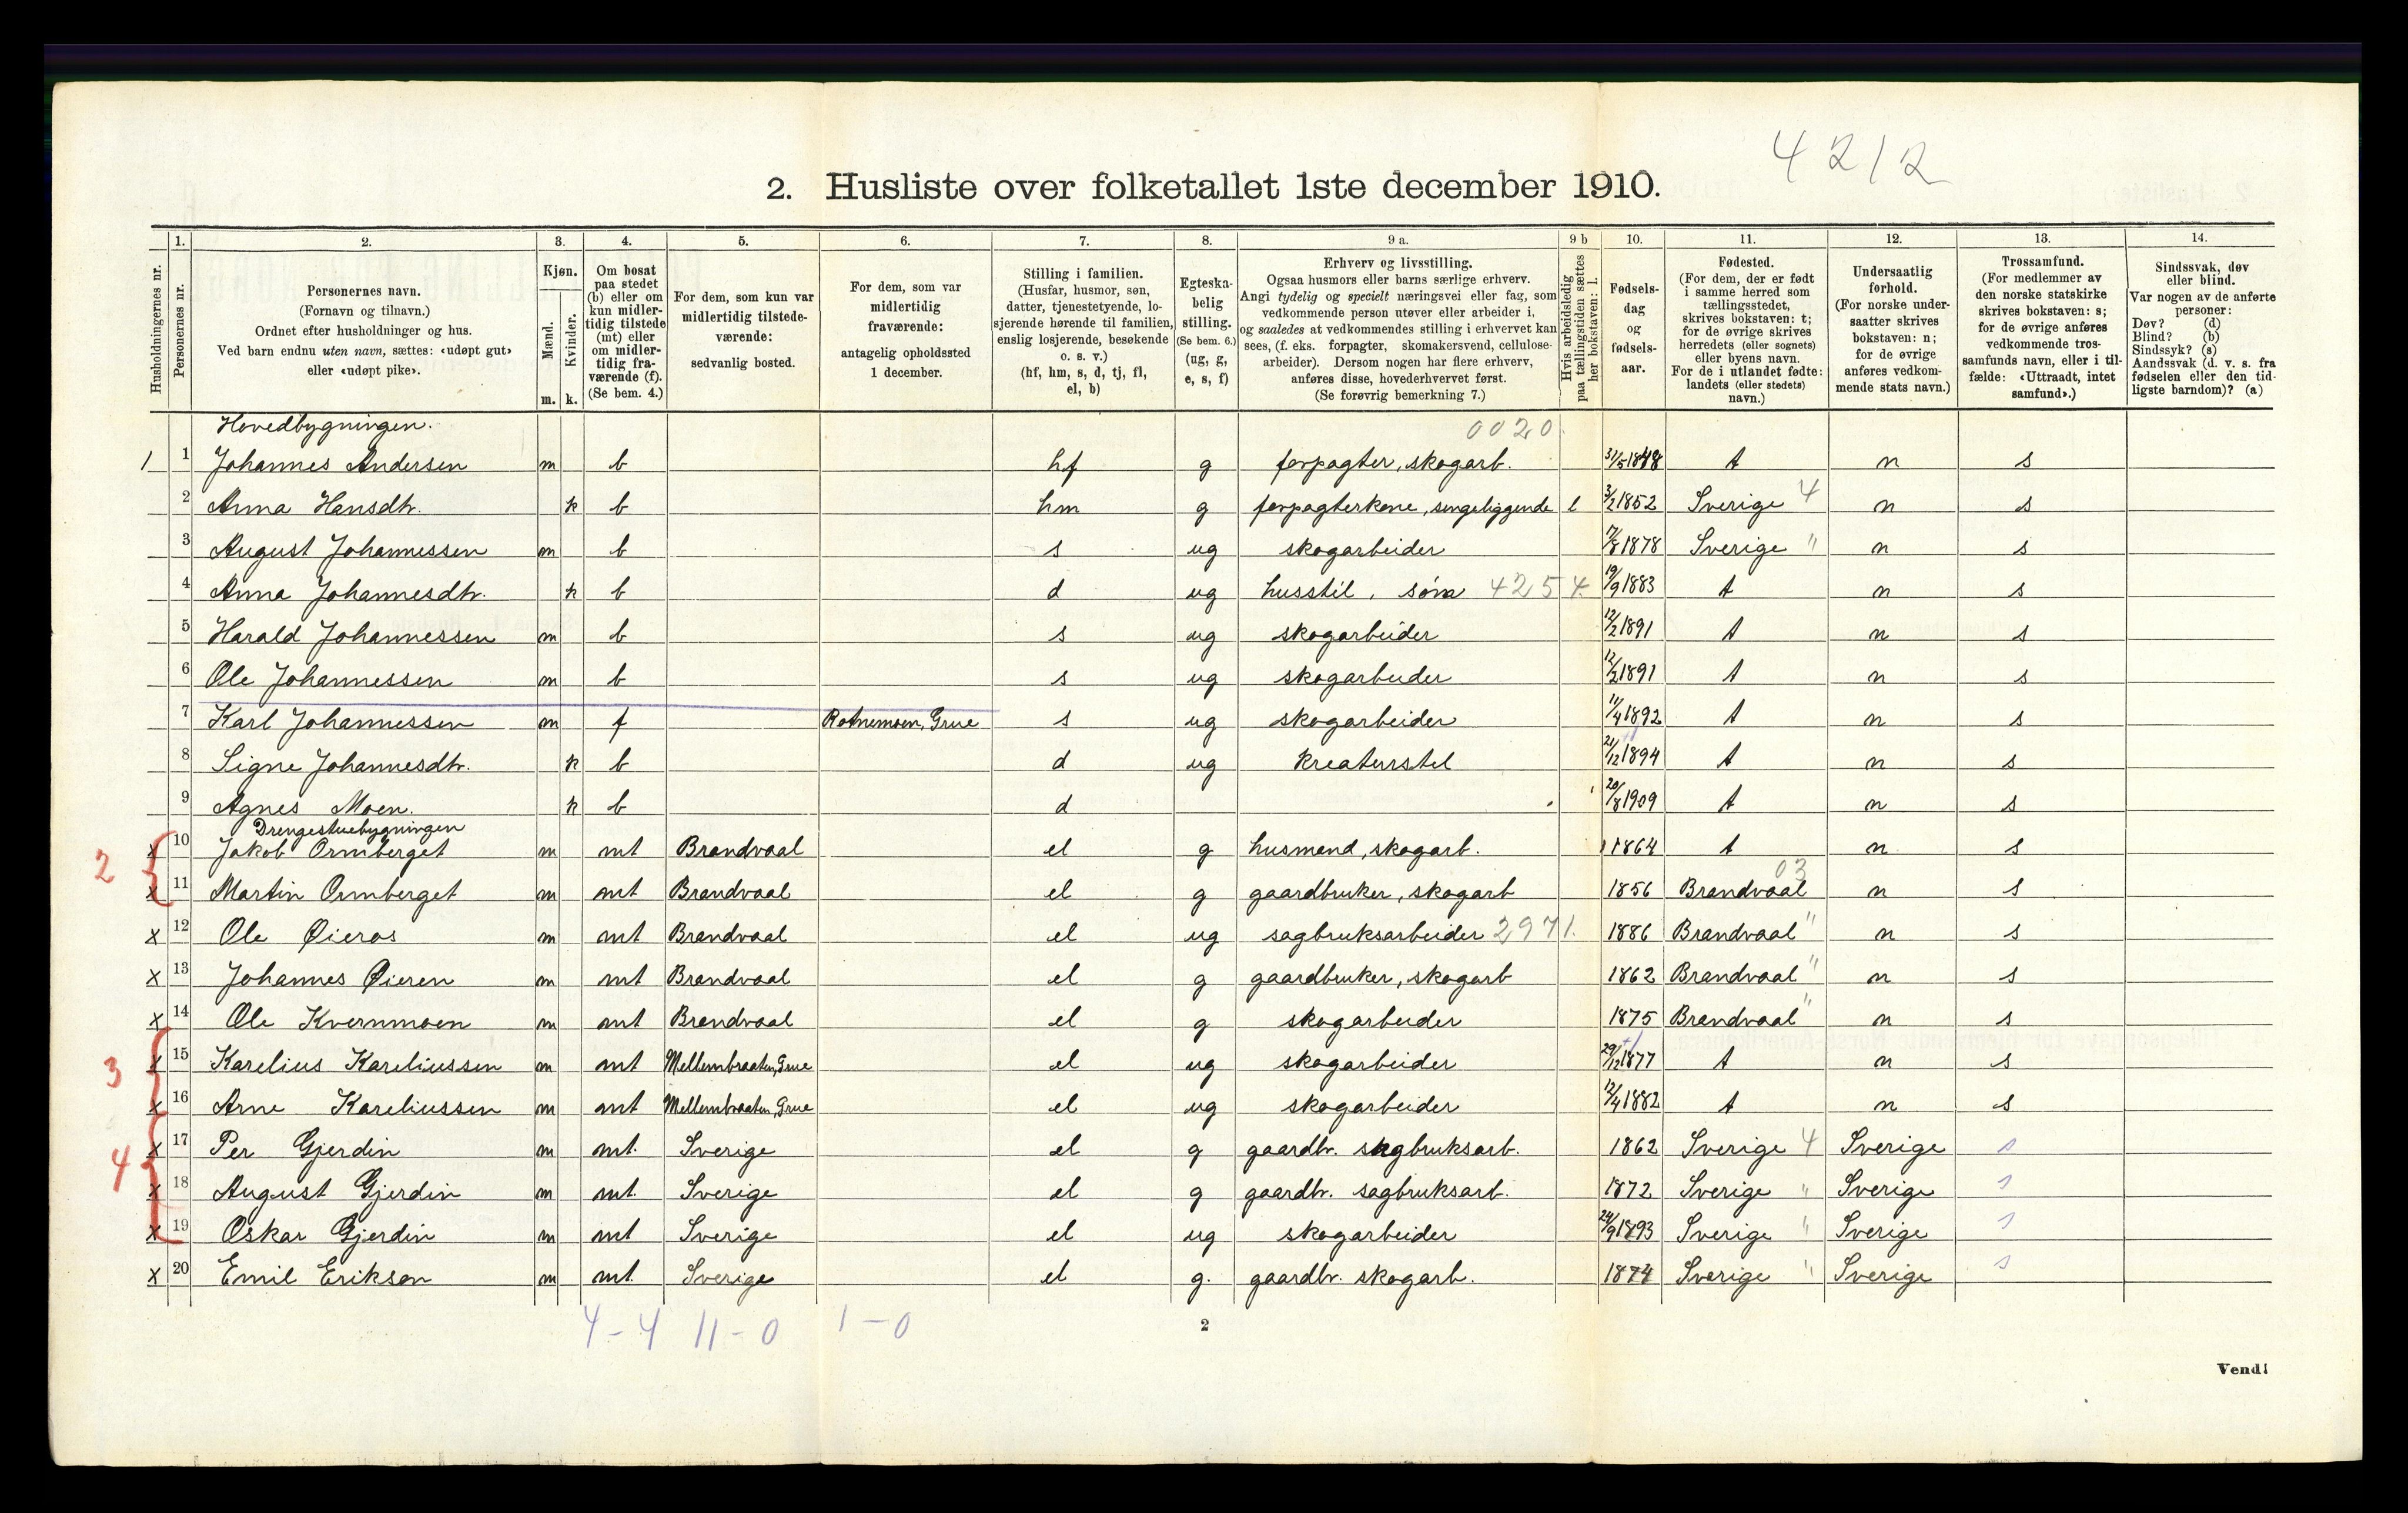 4212
2. Husliste over folketallet 1ste december 1910.
1. 2. 3. 4. 5. 6. 7. 8. 9 a. 9 b 10. 11. 12. 13. 14.
Husholdningernes nr.
Personernes nr.
Personernes navn.
(Fornavn og tilnavn.)
Ordnet efter husholdninger og hus.
Ved barn endnu uten navn, sættes: «udøpt gut»
eller «udøpt pike».
Kjøn.
Mænd.
Kvinder.
m. k.
Om bosat
paa stedet
(b) eller om
kun midler-
tidig tilstede
(mt) eller
om midler-
tidig fra-
værende (f).
(Se bem. 4.)
For dem, som kun var
midlertidig tilstede-
værende:
sedvanlig bosted.
For dem, som var
midlertidig
fraværende:
antagelig opholdssted
1 december.
Stilling i familien.
(Husfar, husmor, søn,
datter, tjenestetyende, lo-
sjerende hørende til familien,
enslig losjerende, besøkende
o. s. v.)
(hf, hm, s, d, tj, fl,
el, b)
Egteska-
belig
stilling.
(Se bem. 6.)
(ug, g,
e, s, f)
Erhverv og livsstilling.
Ogsaa husmors eller barns særlige erhverv.
Angi tydelig og specielt næringsvei eller fag, som
vedkommende person utøver eller arbeider i,
og saaledes at vedkommendes stilling i erhvervet kan
sees, (f. eks. forpagter, skomakersvend, cellulose-
arbeider). Dersom nogen har flere erhverv,
anføres disse, hovederhvervet først.
(Se forøvrig bemerkning 7.)
Hvis arbeidsledig
paa tællingstiden sættes
her bokstaven: l.
Fødsels-
dag
og
fødsels-
aar.
Fødested.
(For dem, der er født
i samme herred som
tællingsstedet,
skrives bokstaven: t;
for de øvrige skrives
herredets (eller sognets)
eller byens navn.
For de i utlandet fødte:
landets (eller stedets)
navn.)
Undersaatlig
forhold.
(For norske under-
saatter skrives
bokstaven: n;
for de øvrige
anføres vedkom-
mende stats navn.)
Trossamfund.
(For medlemmer av
den norske statskirke
skrives bokstaven: s;
for de øvrige anføres
vedkommende tros-
samfunds navn, eller i til-
fælde: «Uttraadt, intet
samfund».)
Sindssvak, døv
eller blind.
Var nogen av de anførte
personer:
Døv? (d)
Blind? (b)
Sindssyk? (s)
Aandssvak (d. v. s. fra
fødselen eller den tid-
ligste barndom)? (a)
Hovedbygningen. 0020
1 1 Johannes Andersen m b hf g forpagter, skogarb. 31/5 1848 t n s
2 Anna Hansdtr. k b hm g forpagterkone, sengeliggende l 3/2 1852 Sverige 4 n s
3 August Johannessen m b s ug skogarbeider 7/8 1878 Sverige " n s
4 Anna Johannesdtr. k b d ug husstil, 4254 19/9 1883 t n s
5 Harald Johannessen m b s ug skogarbeider 12/2 1891 t n s
6 Ole Johannessen m b s ug skogarbeider 12/2 1891 t n s
7 Karl Johannessen m f Rotnemoen, Grue s ug skogarbeider 11/4 1892 t n s
8 Signe Johannesdtr. k b d ug kreaturstel 21/12 1894 t n s
9 Agnes Moen. k b d 20/8 1909 t n s
Drengestuebygningen
2 x 10 Jakob Ormberget m mt Brandvaal el g husmand, skogarb. 1864 t n s
x 11 Martin Ormberget m mt Brandvaal el g gaardbruker, skogarb 1856 Brandvaal 03 n s
x 12 Ole Øieras m mt Brandvaal el ug sagbruksarbeider 2971. 1886 Brandvaal " n s
x 13 Johannes Øieren m mt Brandvaal el g gaardbruker, skogarb 1862 Brandvaal " n s
x 14 Ole Kvernmoen m mt Brandvaal el g skogarbeider 1875 Brandvaal " n s
3 x 15 Karelius Kareliussen m mt Mellembraaten, Grue el ug skogarbeider 29/12 1877 t n s
x 16 Arne Kareliussen m mt Mellembraaten, Grue el ug skogarbeider 12/4 1882 t n s
4 x 17 Per Gjerdin m mt. Sverige el g gaardbr. sagbruksarb. 1862 Sverige 4 Sverige s
x 18 August Gjerdin m mt. Sverige el g gaardbr. sagbruksarb. 1872 Sverige " Sverige s
x 19 Oskar Gjerdin m mt Sverige el ug skogarbeider 24/9 1893 Sverige " Sverige s
x 20 Emil Erikson m mt. Sverige el g. gaardbr. skogarb. 1874 Sverige " Sverige s
4-4 11-0 1-0
2
Vend!